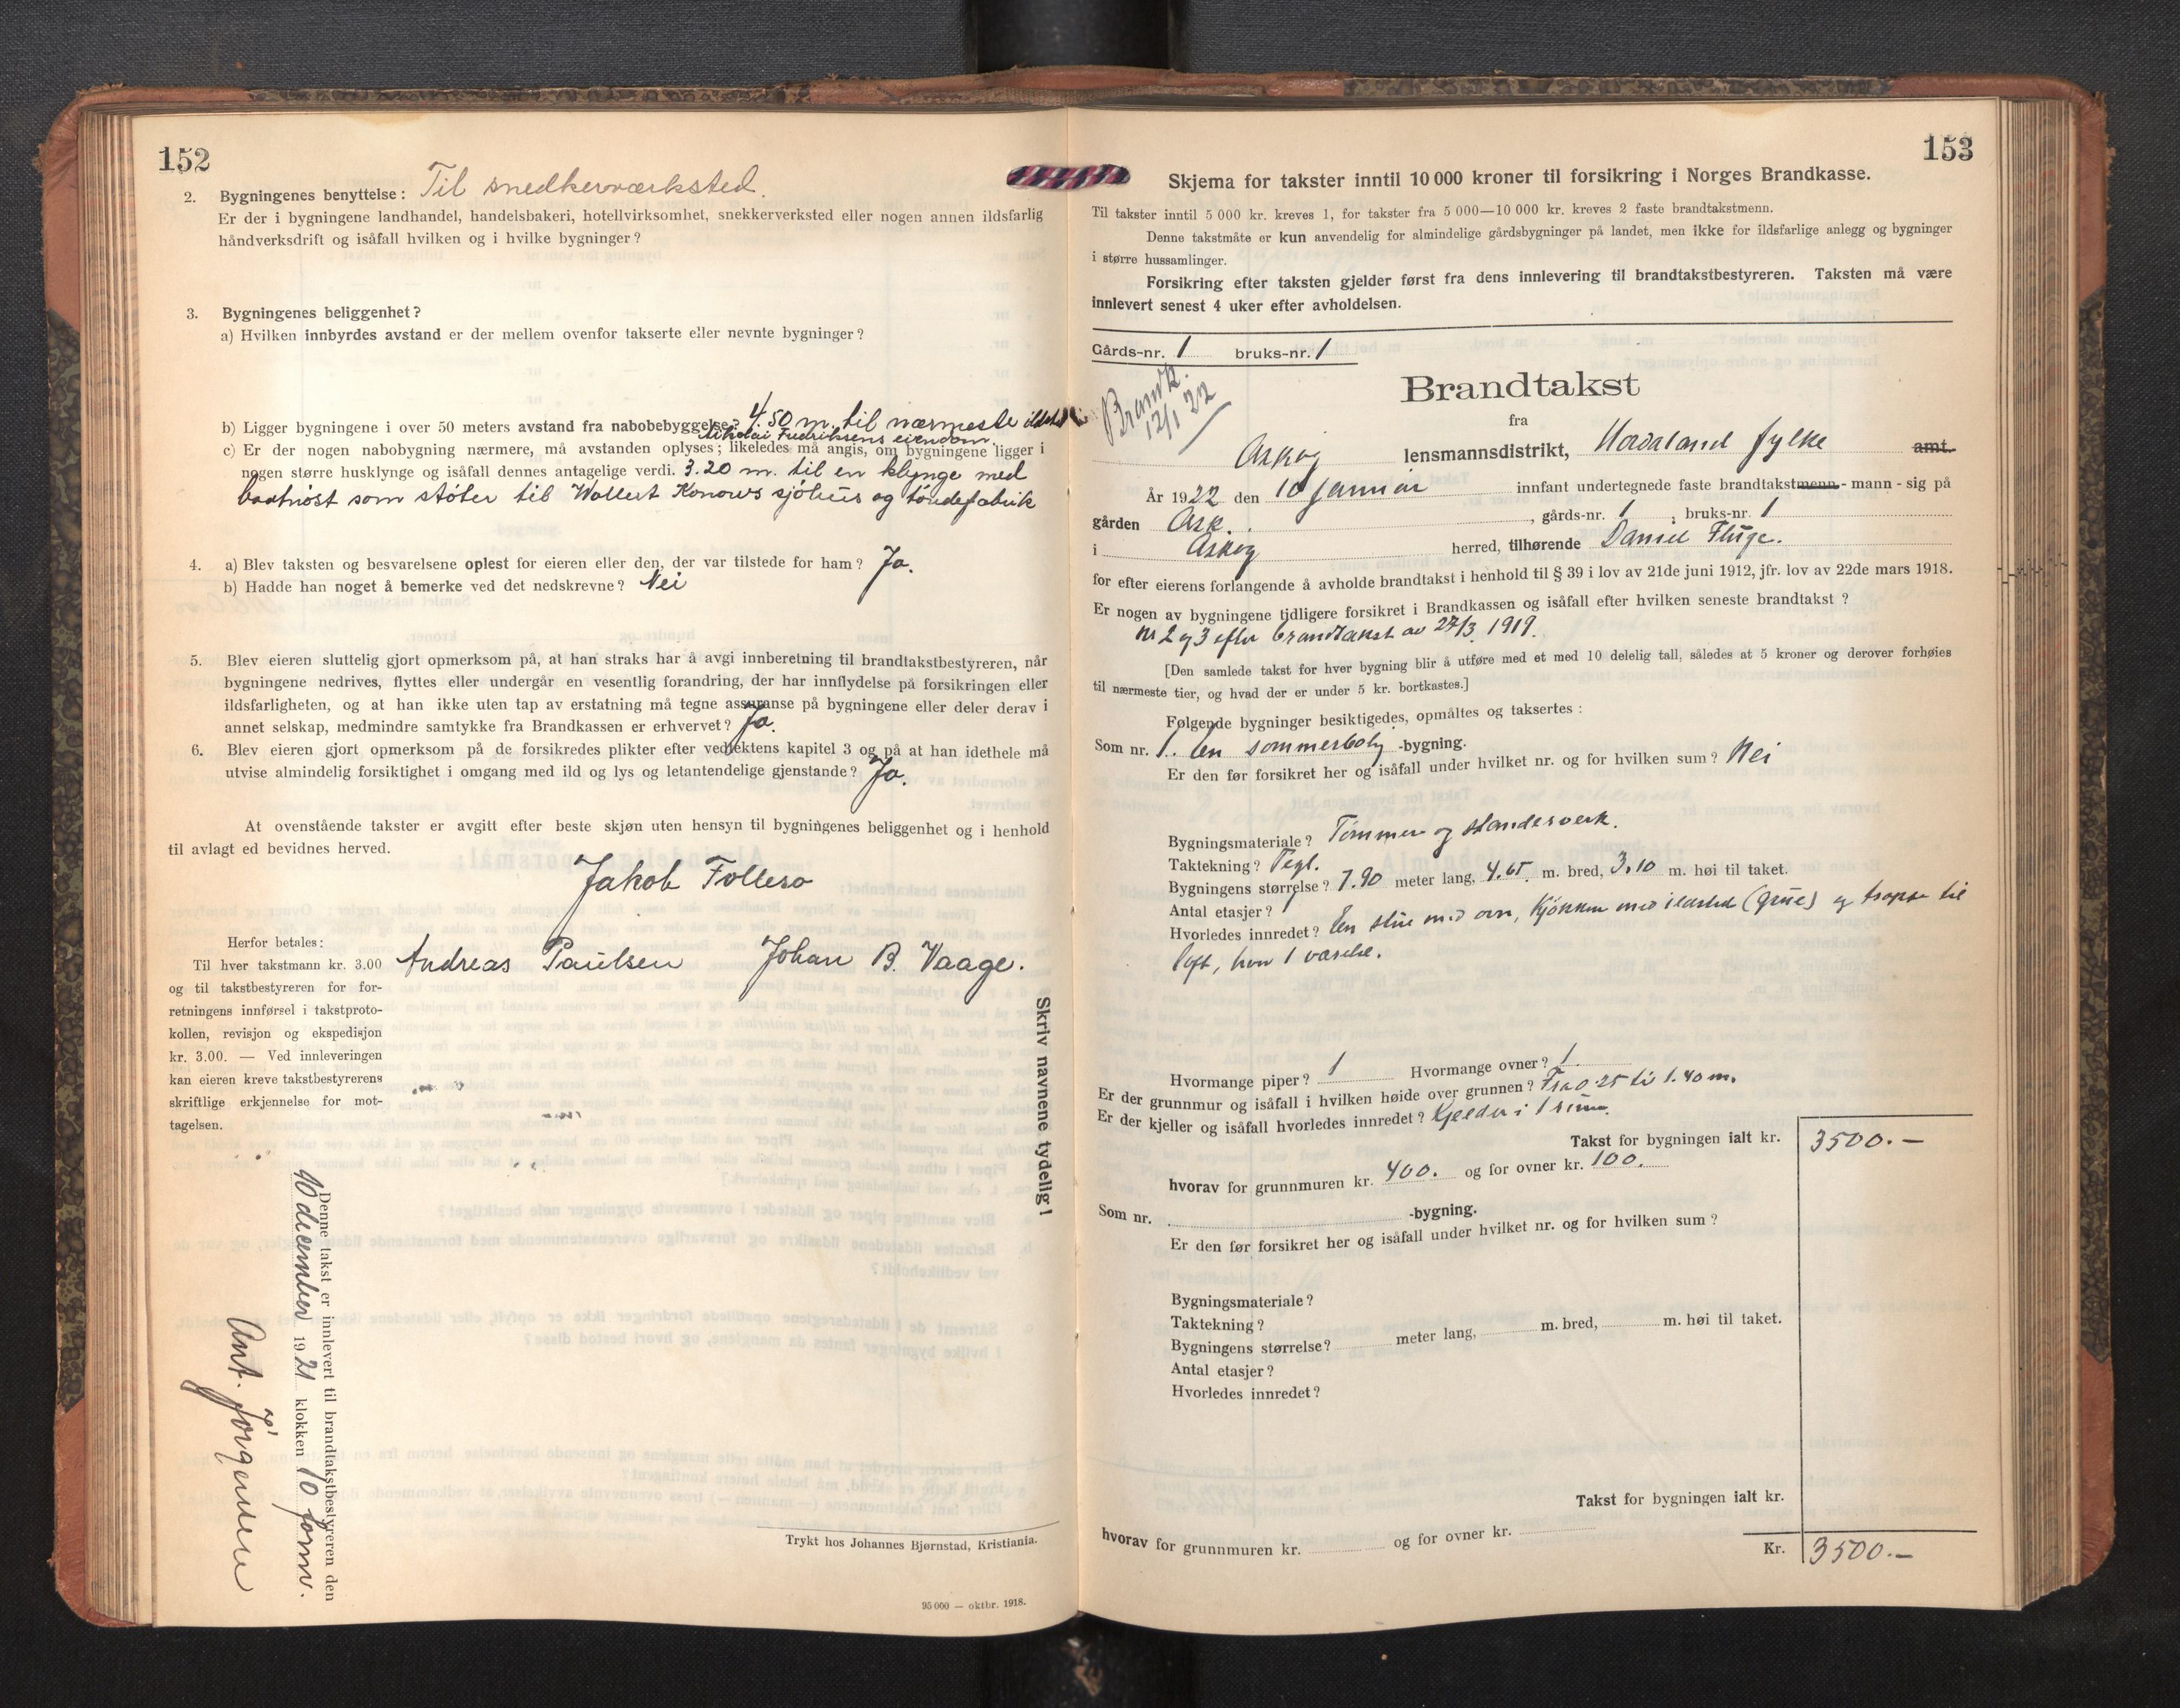 152
2. Bygningenes benyttelse: Til snedkerværksted.
Er der i bygningene landhandel, handelsbakeri, hotellvirksomhet, snekkerverksted eller nogen annen ildsfarlig
håndverksdrift og isåfall hvilken og i hvilke bygninger?
3. Bygningenes beliggenhet?
a) Hvilken innbyrdes avstand er der mellem ovenfor takserte eller nevnte bygninger?
b) Ligger bygningene i over 50 meters avstand fra nabobebyggelse? 4.50 m. til nærmeste ildsted
Nikolai Fredriksens eiendom.
c) Er der nogen nabobygning nærmere, må avstanden oplyses; likeledes må angis, om bygningene ligger i
nogen større husklynge og isåfall dennes antagelige verdi. 3.20 m. til en klynge med
baatnöst som stöter til Wollert Konows sjöhus og töndefabrik
4. a) Blev taksten og besvarelsene oplest for eieren eller den, der var tilstede for ham? Ja.
b) Hadde han noget å bemerke ved det nedskrevne? Nei
5. Blev eieren sluttelig gjort opmerksom på, at han straks har å avgi innberetning til brandtakstbestyreren, når
bygningene nedrives, flyttes eller undergår en vesentlig forandring, der har innflydelse på forsikringen eller
ildsfarligheten, og at han ikke uten tap av erstatning må tegne assuranse på bygningene eller deler derav i
annet selskap, medmindre samtykke fra Brandkassen er erhvervet? Ja.
6. Blev eieren gjort opmerksom på de forsikredes plikter efter vedtektens kapitel 3 og på at han idethele må
utvise almindelig forsiktighet i omgang med ild og lys og letantendelige gjenstande? Ja.
At ovenstående takster er avgitt efter beste skjøn uten hensyn til bygningenes beliggenhet og i henhold
til avlagt ed bevidnes herved.
Jakob Follesø
Andreas Paulsen Johan B. Vaage.
Herfor betales:
Til hver takstmann kr. 3.00
og til takstbestyreren for for-
retningens innførsel i takstproto-
kollen, revisjon og ekspedisjon
kr. 3.00. — Ved innleveringen
kan eieren kreve takstbestyrerens
skriftlige erkjennelse for mot-
tagelsen.
Skriv navnene tydelig!
Denne takst er innlevert til brandtakstbestyreren den
10 december 1921 klokken 10 form.
Ant. Jörgensen
Trykt hos Johannes Bjørnstad, Kristiania.
95 000 — oktbr. 1918.
153
Skjema for takster inntil 10 000 kroner til forsikring i Norges Brandkasse.
Til takster inntil 5 000 kr. kreves 1, for takster fra 5 000—10 000 kr. kreves 2 faste brandtakstmenn.
Denne takstmåte er kun anvendelig for almindelige gårdsbygninger på landet, men ikke for ildsfarlige anlegg og bygninger
i større hussamlinger.
Forsikring efter taksten gjelder først fra dens innlevering til brandtakstbestyreren. Taksten må være
innlevert senest 4 uker efter avholdelsen.
Gårds-nr. 1 bruks-nr. 1
Brandk.
12/1 22
Brandtakst
fra
Askøy lensmannsdistrikt, Hordaland fylke amt.
År 1922 den 10 januar innfant undertegnede faste brandtakstmenn - mann - sig på
gården Ask. , gårds-nr. 1 , bruks-nr. 1
i Askøy herred, tilhørende Daniel Fluge.
for efter eierens forlangende å avholde brandtakst i henhold til § 39 i lov av 21de juni 1912, jfr. lov av 22de mars 1918.
Er nogen av bygningene tidligere forsikret i Brandkassen og isåfall efter hvilken seneste brandtakst?
Nr 2 og 3 efter brandtakst av 27/3 1919.
[Den samlede takst for hver bygning blir å utføre med et med 10 delelig tall, således at 5 kroner og derover forhøies
til nærmeste tier, og hvad der er under 5 kr. bortkastes.]
Følgende bygninger besiktigedes, opmåltes og taksertes:
Som nr. 1. en sommerbolig -bygning.
Er den før forsikret her og isåfall under hvilket nr. og for hvilken sum? Nei
Bygningsmateriale? Tömmer og standerverk.
Taktekning? Tegl.
Bygningens størrelse? 7.90 meter lang, 4.65 m. bred, 3.10 m. høi til taket.
Antal etasjer? 1
Hvorledes innredet? En stue med ovn, kjökken med ildsted (grue) og trappe til
loft, hvor 1 værelse.
Hvormange piper? 1 Hvormange ovner? 1
Er der grunnmur og isåfall i hvilken høide over grunnen? Fra 0.25 til 1.40 m.
Er der kjeller og isåfall hvorledes innredet? Kjelder i 1 rum.
Takst for bygningen ialt kr. 3500.—
hvorav for grunnmuren kr. 400. og for ovner kr. 100.
Som nr. -bygning.
Er den før forsikret her og isåfall under hvilket nr. og for hvilken sum?
Bygningsmateriale?
Taktekning?
Bygningens størrelse? meter lang, m. bred, m. høi til taket.
Antal etasjer?
Hvorledes innredet?
Takst for bygningen ialt kr.
hvorav for grunnmuren kr. og for ovner kr.
Kr. 3500.—